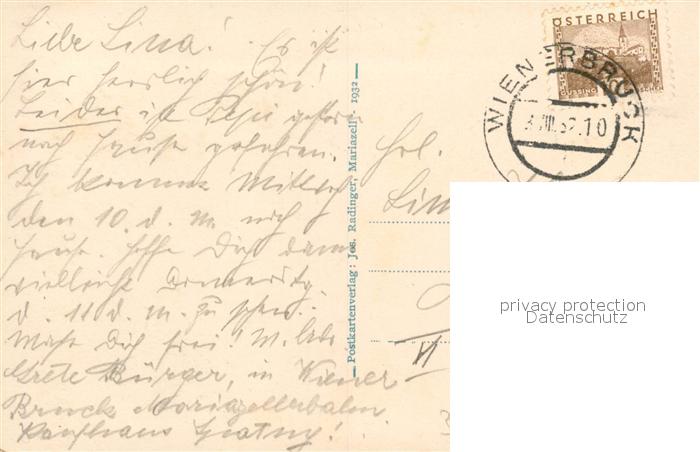 Liebe Lina! Es ist
hier herrlich schön!
Leider ist Pepi gestern
nach Hause gefahren.
Ich komme Mittwoch
den 10. d. M. nach
Hause. Hoffe Dich dann
vielleicht Donnerstg.
d. 11. d. M. zu sehen.
Mache Dich frei!
Grete Bürger, in Wiener
Bruck Mariazellerbahn
Kaufhaus
— Postkartenverlag: Jos. Radinger, Mariazell. - 1932 —
Frl.
Lina
VI
ÖSTERREICH
GÜSSING
WIENERBRUCK
privacy protection
Datenschutz